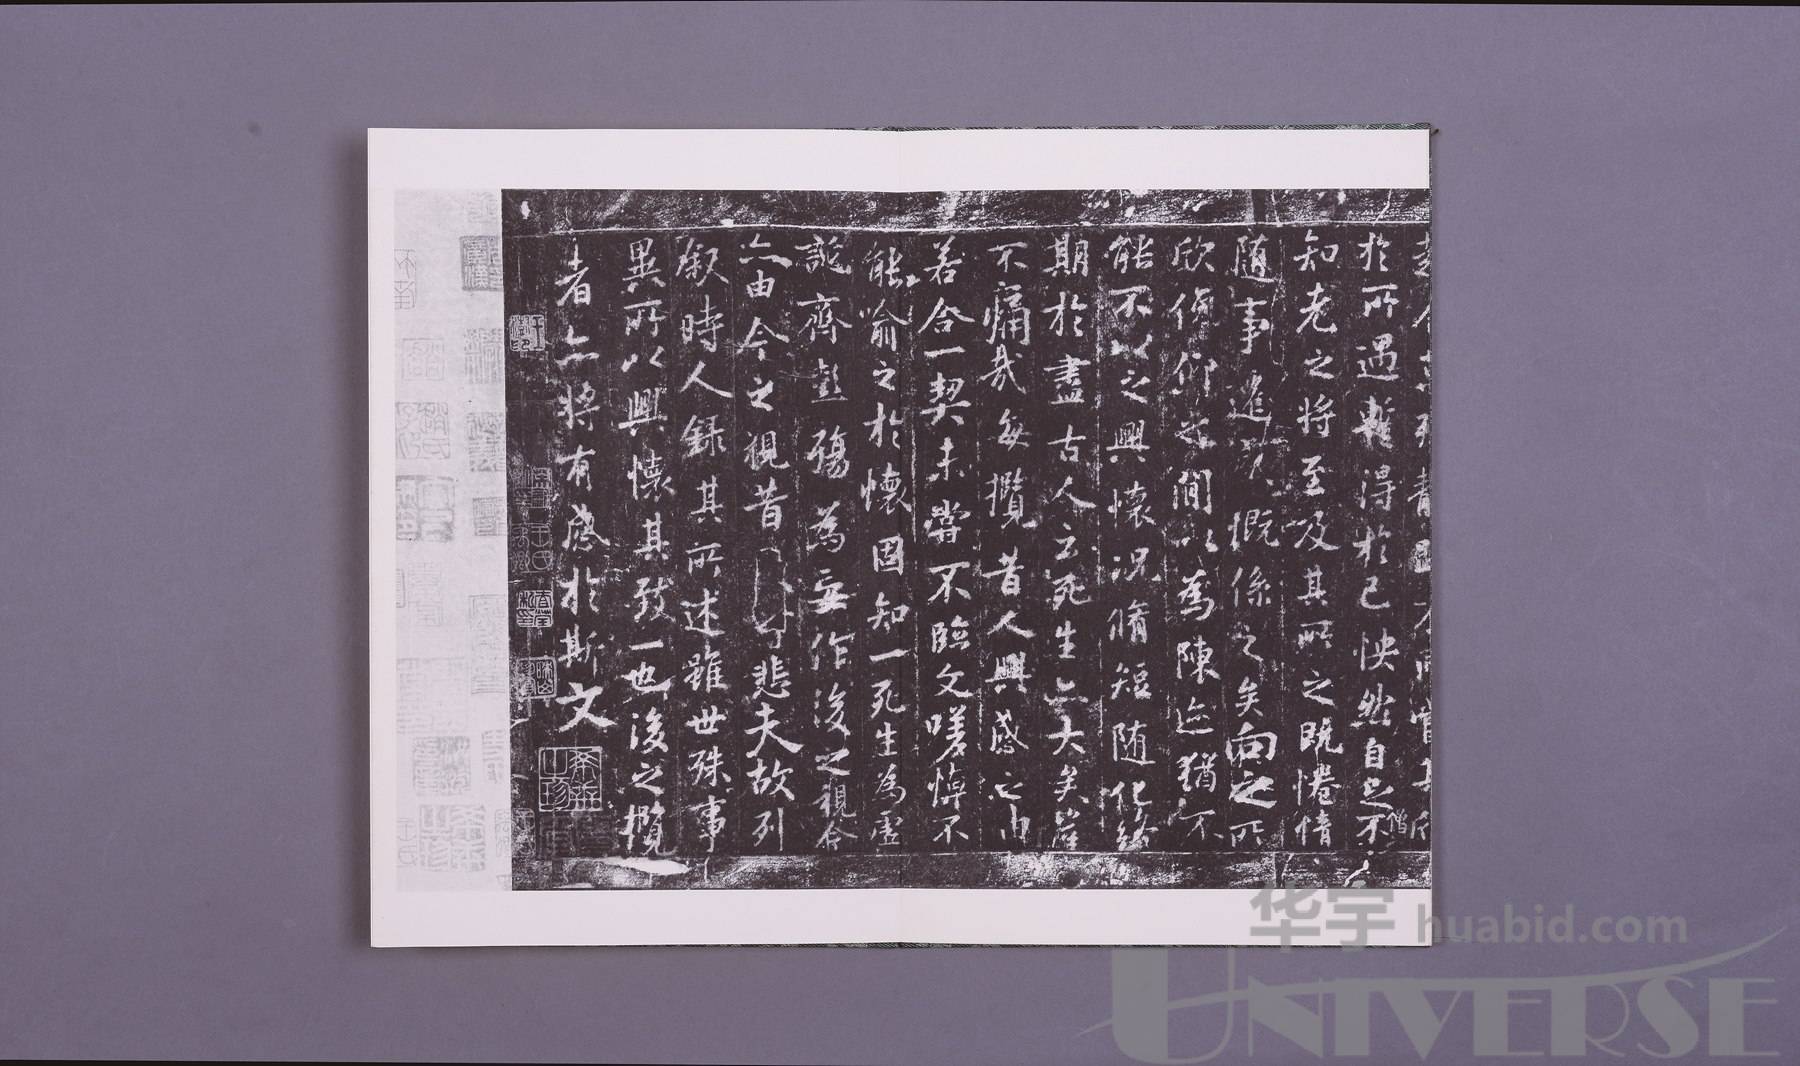 趣舍萬殊靜躁不同當其欣
於所遇暫得於己怏然自足不
僧
知老之將至及其所之既惓情
隨事遷感慨係之矣向之所
欣俛仰之間以為陳迹猶不
能不以之興懷況脩短隨化終
期於盡古人云死生亦大矣豈
不痛哉每攬昔人興感之由
若合一契未嘗不臨文嗟悼不
能喻之於懷固知一死生為虛
誕齊彭殤為妄作後之視今
亦由今之視昔悲夫故列
敘時人錄其所述雖世殊事
異所以興懷其致一也後之攬
者亦將有感於斯文
华宇 huabid.com
UNIVERSE